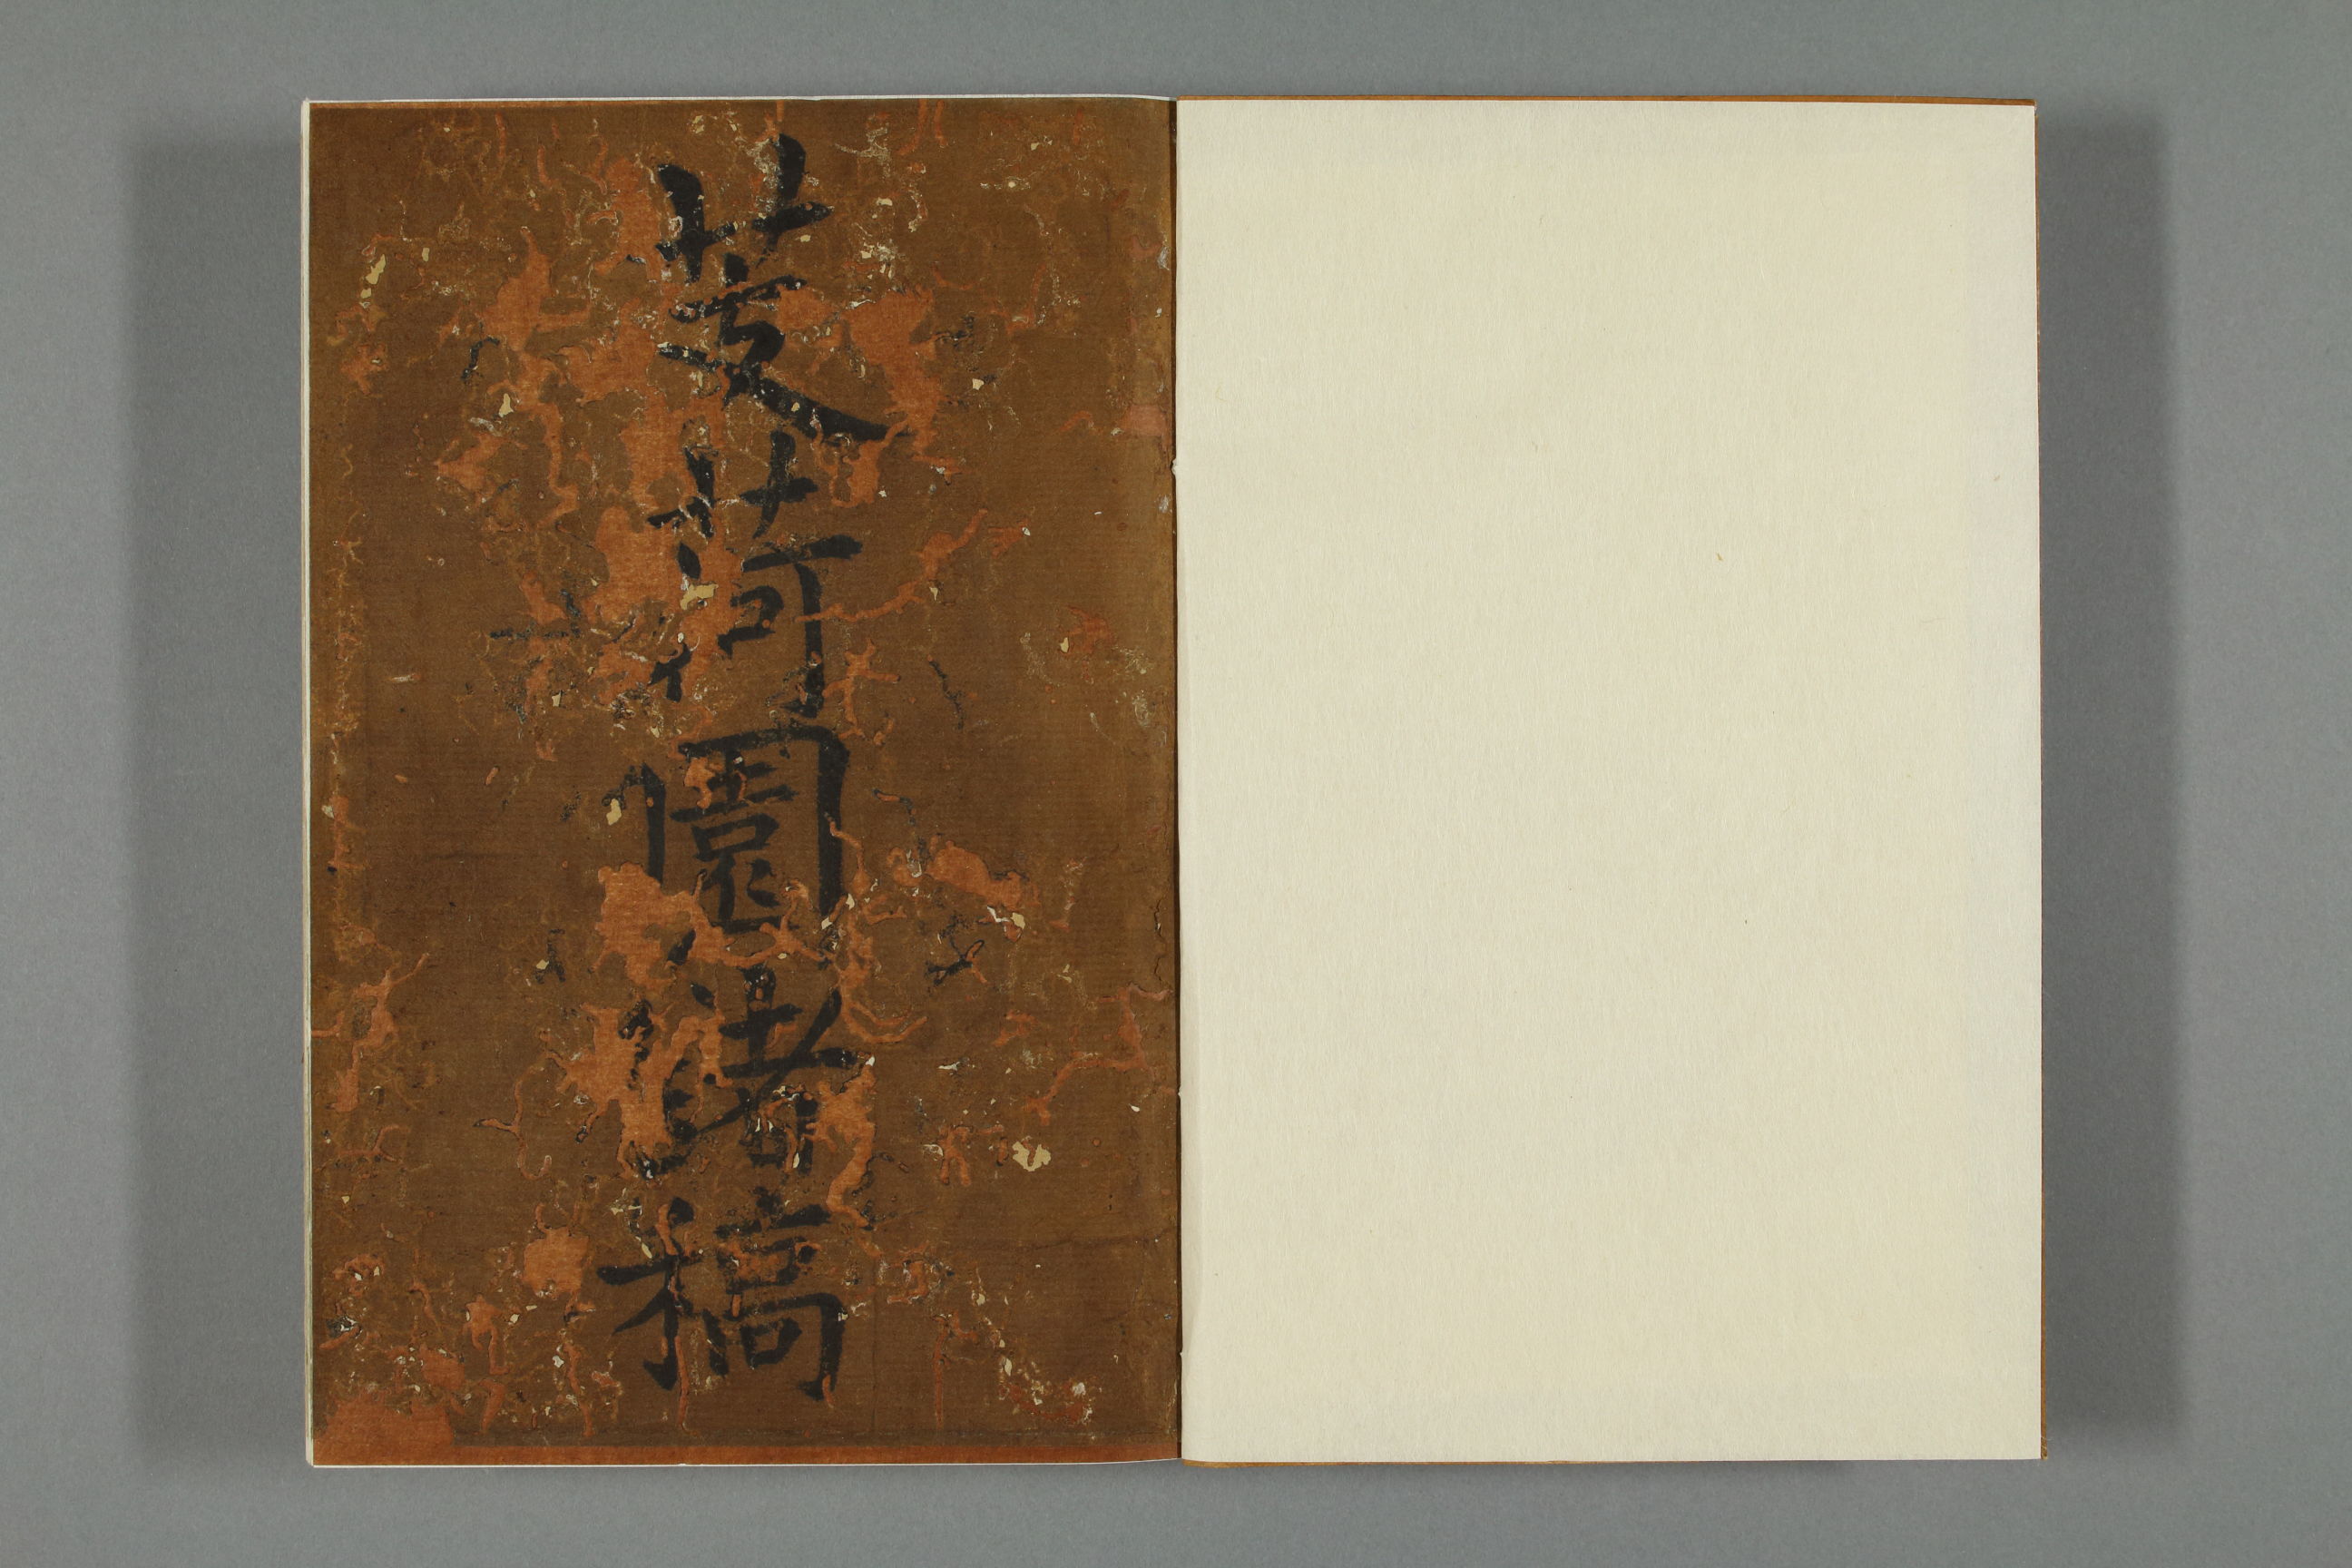 芰荷園諸稿